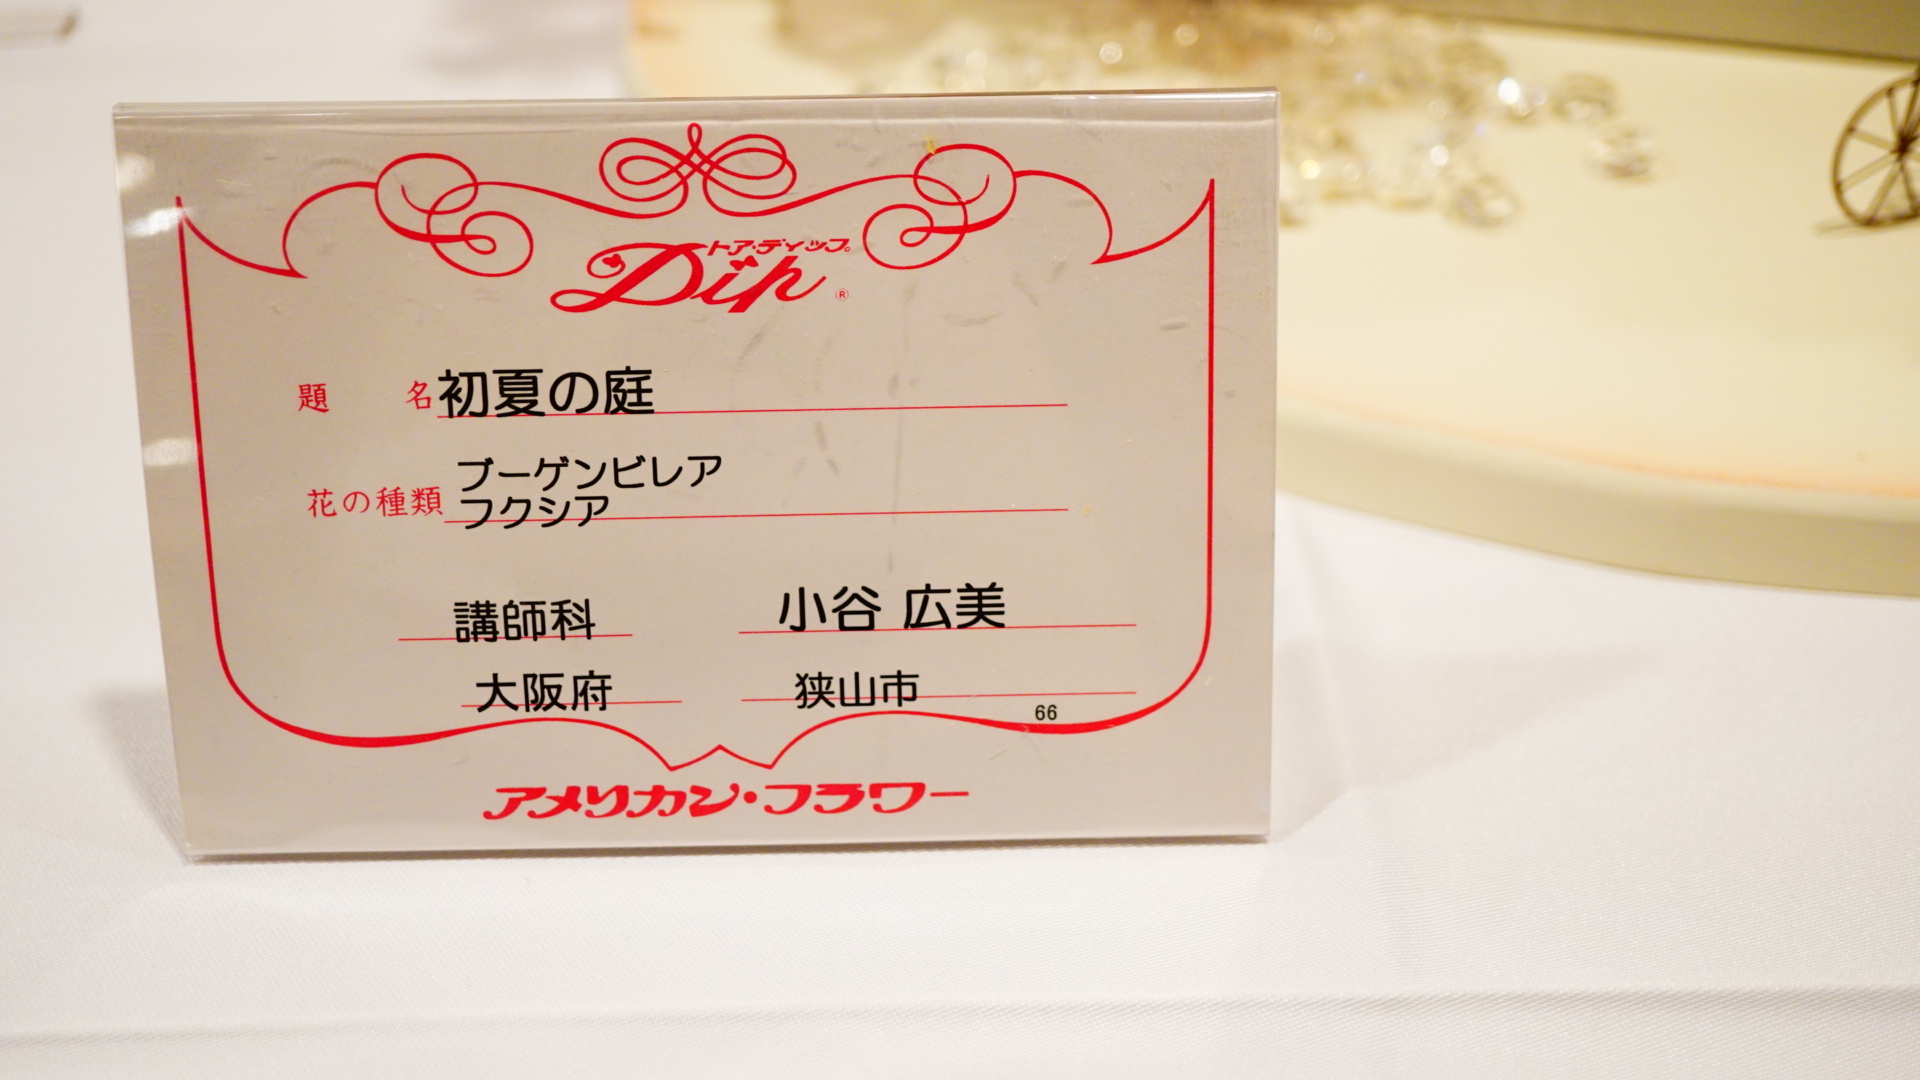 トア・ディップ
Dip ®
題 名 初夏の庭
花の種類 ブーゲンビレア
フクシア
講師科 小谷 広美
大阪府 狭山市
66
アメリカン・フラワー